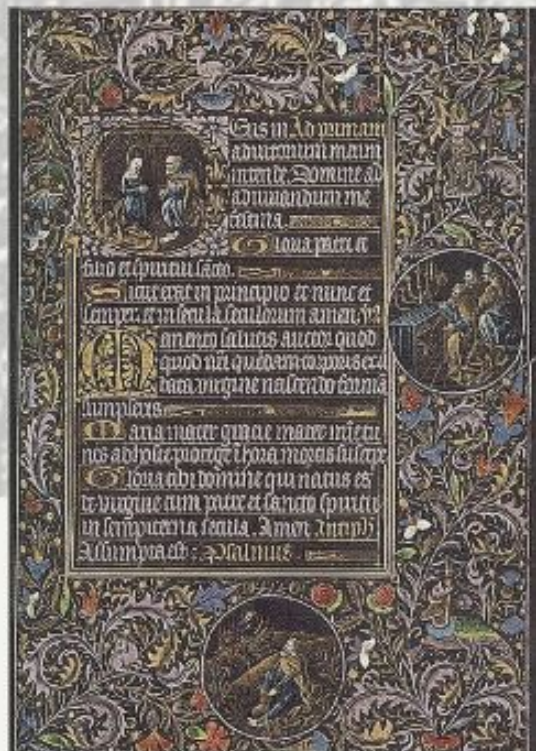 Eus in Ad primam
adiutorium meum
intende Domine ad
adiuvandum me
festina
Gloria patri et
filio et spiritui sancto
Sicut erat in principio et nunc et
semper et in secula seculorum amen
Memento salutis auctor quod
quod nri quondam corporis ex il
bata virgine nascendo formā
sumpseris
Maria mater gratie mater mie tu
nos ab hoste protege et hora mortis suscipe
Gloria tibi domine qui natus es
de virgine cum patre et sancto spiritu
in sempiterna secula Amen Antiph
Assumpta est Psalmus